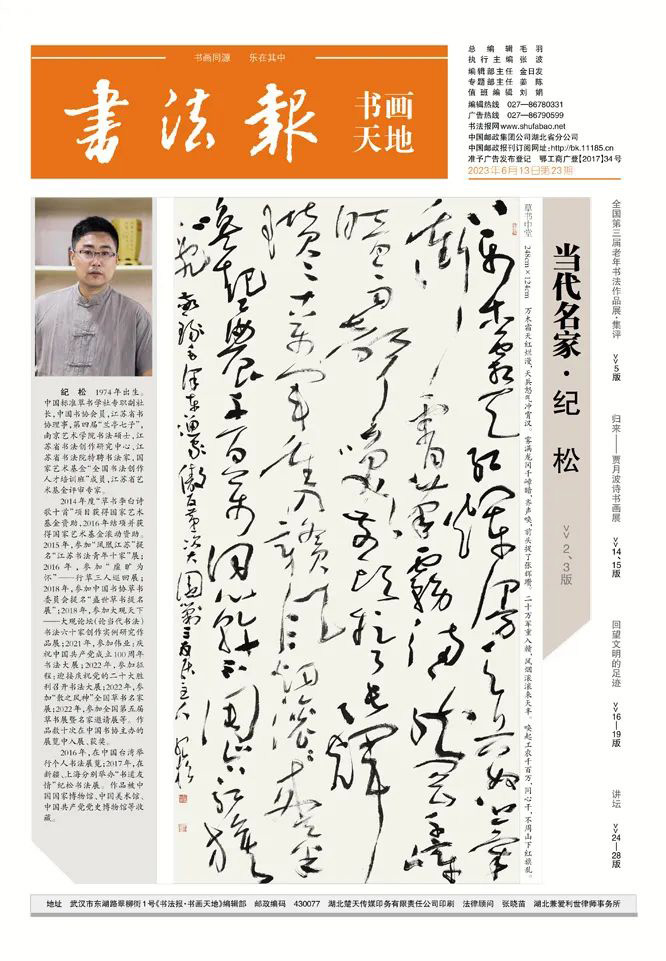 书画同源 乐在其中
书法报
书画
天地
总编辑 毛羽
执行主编 张波
编辑部主任 金日发
专题部主任 姜陈
值班编辑 刘娟
编辑热线 027—86780331
广告热线 027—86790599
书法报网www.shufabao.net
中国邮政集团公司湖北省分公司
中国邮政报刊订阅网址:http://bk.11185.cn
准予广告发布登记 鄂工商广登【2017】34号
2023年6月13日第23期
全国第三届老年书法作品展·集评 >>5版
归来——贾月波诗书画展 >>14、15版
回望文明的足迹 >>16—19版
讲坛 >>24—28版
当代名家·纪 松
>>2、3版
草书中堂 248cm×124cm 万木霜天红烂漫,天兵怒气冲霄汉。雾满龙冈千嶂暗,齐声唤,前头捉了张辉瓒。二十万军重入赣,风烟滚滚来天半。唤起工农千百万,同心干,不周山下红旗乱。
纪 松 1974年出生。
中国标准草书学社专职副社
长,中国书协会员,江苏省书
协理事,第四届“兰亭七子”,
南京艺术学院书法硕士,江
苏省书法创作研究中心、江
苏省书法院特聘书法家,国
家艺术基金“全国书法创作
人才培训班”成员,江苏省艺
术基金评审专家。
2014年度“草书李白诗
歌十首”项目获得国家艺术
基金资助,2016年结项并获
得国家艺术基金滚动资助。
2015年,参加“凤凰江苏”提
名“江苏书法青年十家”展;
2016年,参加“虚旷为
怀”——行草三人巡回展;
2018年,参加中国书协草书
委员会提名“盛世草书提名
展”;2018年,参加大观天下
——大观论坛(论当代书法)
书法六十家创作实例研究作
品展;2021年,参加伟业:庆
祝中国共产党成立100周年
书法大展;2022年,参加征
程:迎接庆祝党的二十大胜
利召开书法大展;2022年,参
加“散之风神”全国草书名家
展;2022年,参加全国第五届
草书展暨名家邀请展等。作
品数十次在中国书协主办的
展览中入展、获奖。
2016年,在中国台湾举
行个人书法展览;2017年,在
新疆、上海分别举办“书道友
情”纪松书法展。作品被中
国国家博物馆、中国美术馆、
中国共产党党史博物馆等收
藏。
地址 武汉市东湖路翠柳街1号《书法报·书画天地》编辑部 邮政编码 430077 湖北楚天传媒印务有限责任公司印刷 法律顾问 张晓苗 湖北兼爱利世律师事务所